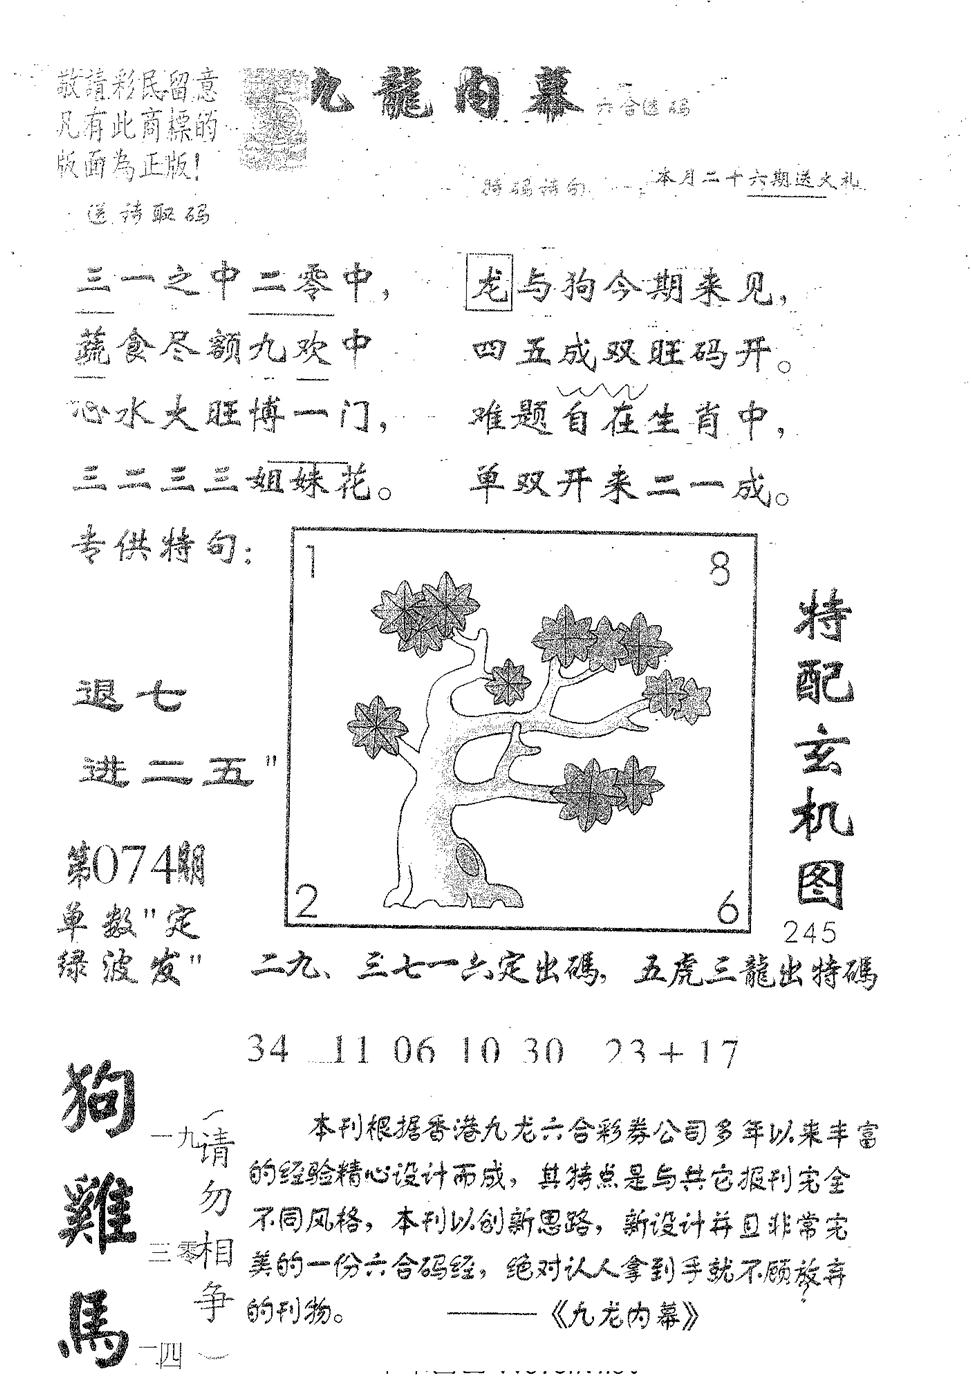 敬請彩民留意
凡有此商標的
版面為正版!
九龍内幕 六合送码
特码诗句 本月二十六期送大礼
送诗取码
三一之中二零中, 龙与狗今期来见,
蔬食尽额九欢中 四五成双旺码开。
心水大旺博一门, 难题自在生肖中,
三二三三姐妹花。 单双开来二一成。
专供特句:
1 8
2 6
特配玄机图
245
退七
进二五"
第074期
单数"定
绿波发"
二九、三七一六定出碼, 五虎三龍出特碼
34 11 06 10 30 23+17
狗 一九
雞 三零
馬 二四
(请勿相争)
本刊根据香港九龙六合彩券公司多年以来丰富
的经验精心设计而成,其特点是与其它报刊完全
不同风格,本刊以创新思路,新设计并且非常完
美的一份六合码经,绝对认人拿到手就不顾放弃
的刊物。 ——《九龙内幕》